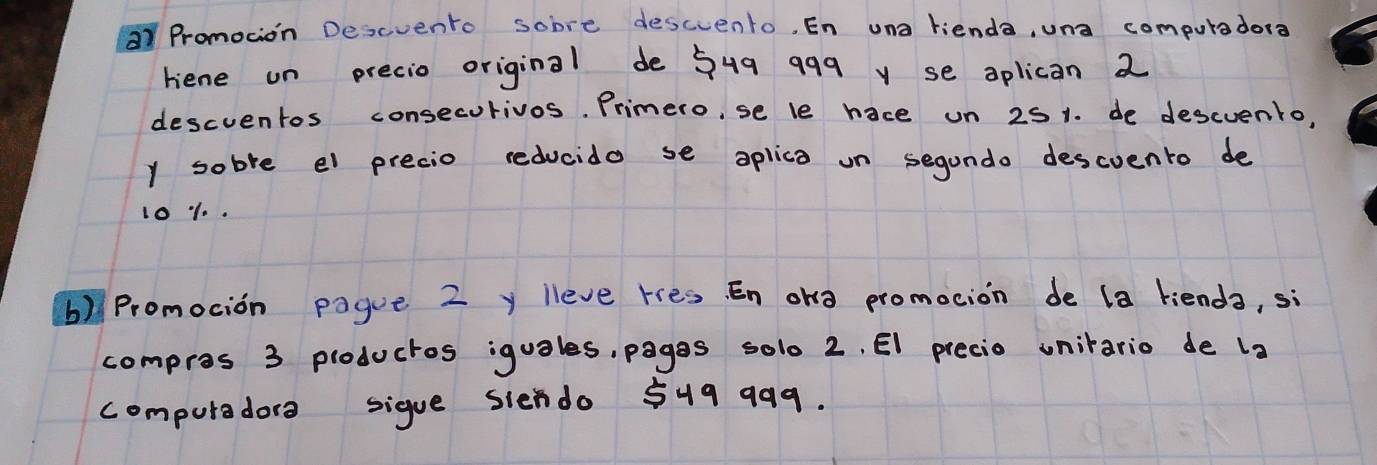 a) Promoción Descuento sobre descuento. En una tienda, una computadora
tiene un precio original de $49 999 y se aplican 2
descuentos consecutivos. Primero, se le hace un 25 %. de descuento,
y sobre el precio reducido se aplica un segundo descuento de
10 %.
b) Promoción pague 2 y lleve tres. En otra promoción de la tienda, si
compras 3 productos iguales, pagas solo 2. El precio unitario de la
computadora sigue siendo $49 999.